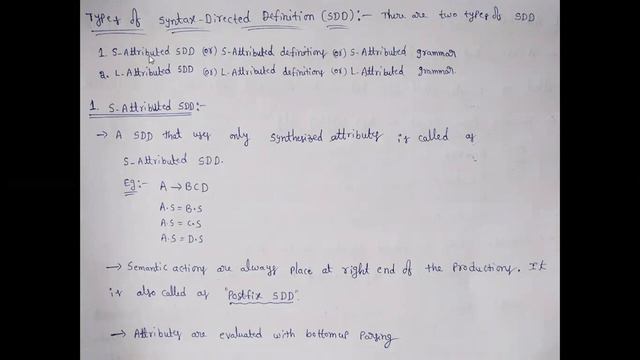 Types of Syntax-Directed Definition (SDD):- There are two types of SDD
1. S-Attributed SDD (or) S-Attributed definitions (or) S-Attributed grammar
2. L-Attributed SDD (or) L-Attributed definitions (or) L-Attributed grammar.
1. S-Attributed SDD:-
→ A SDD that uses only synthesized attributes is called as
S-Attributed SDD.
Eg:- A → BCD
A.S = B.S
A.S = C.S
A.S = D.S
→ Semantic actions are always place at right end of the productions. It
is also called as "Postfix SDD".
→ Attributes are evaluated with bottomup parsing